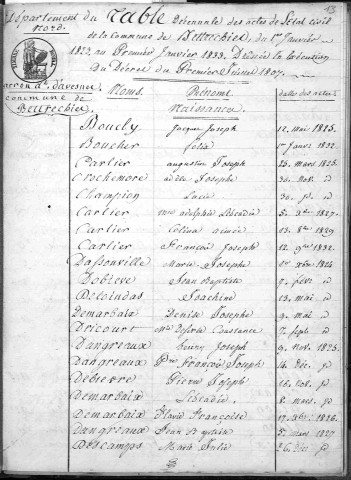 Département du Nord.
Table Décennale des actes de l'état civil
de la Commune de Bettrechies, du 1er Janvier
1823, au Premier Janvier 1833. Dressée en Exécution
Du Décret du Premier Juillet 1807.
13
d'avesnes
commune de
Bettrechies.
Noms. Prénoms. datte des actes
Naissance.
Boucly Jacques Joseph 12. mai 1825.
Boucher félix 1er Janvr 1832.
Cartier augustin Joseph 25. mars 1823.
Crochemore adèle Joseph 30. nov. d
Champion Lucie 30.
Cartier adelphie Léocadie 5. 1827.
Cartier Célina aimée 03. 8bre 1829
Cartier François Joseph 12. 9bre 1832.
Dassonville Marie Josephe 1824
Doblève Jean Baptiste 9. févr. d
Deloindas Joachim 13. mai d
Demarbaix Denise Josephe 9. mai d
Dricourt Désirée Constance 7. sept. d
Dangreaux henry Joseph 9. nov. 1825.
Dangreaux Pre François Joseph 14. Déc.
Debierre Pierre Joseph 16. nov.
Demarbaix Léocadie 8. mars.
Demarbaix flavie Françoise 17. 1826.
Dangreaux Jean Baptiste 5. mars 1827
Descamps Marie Julie 26. Déc.